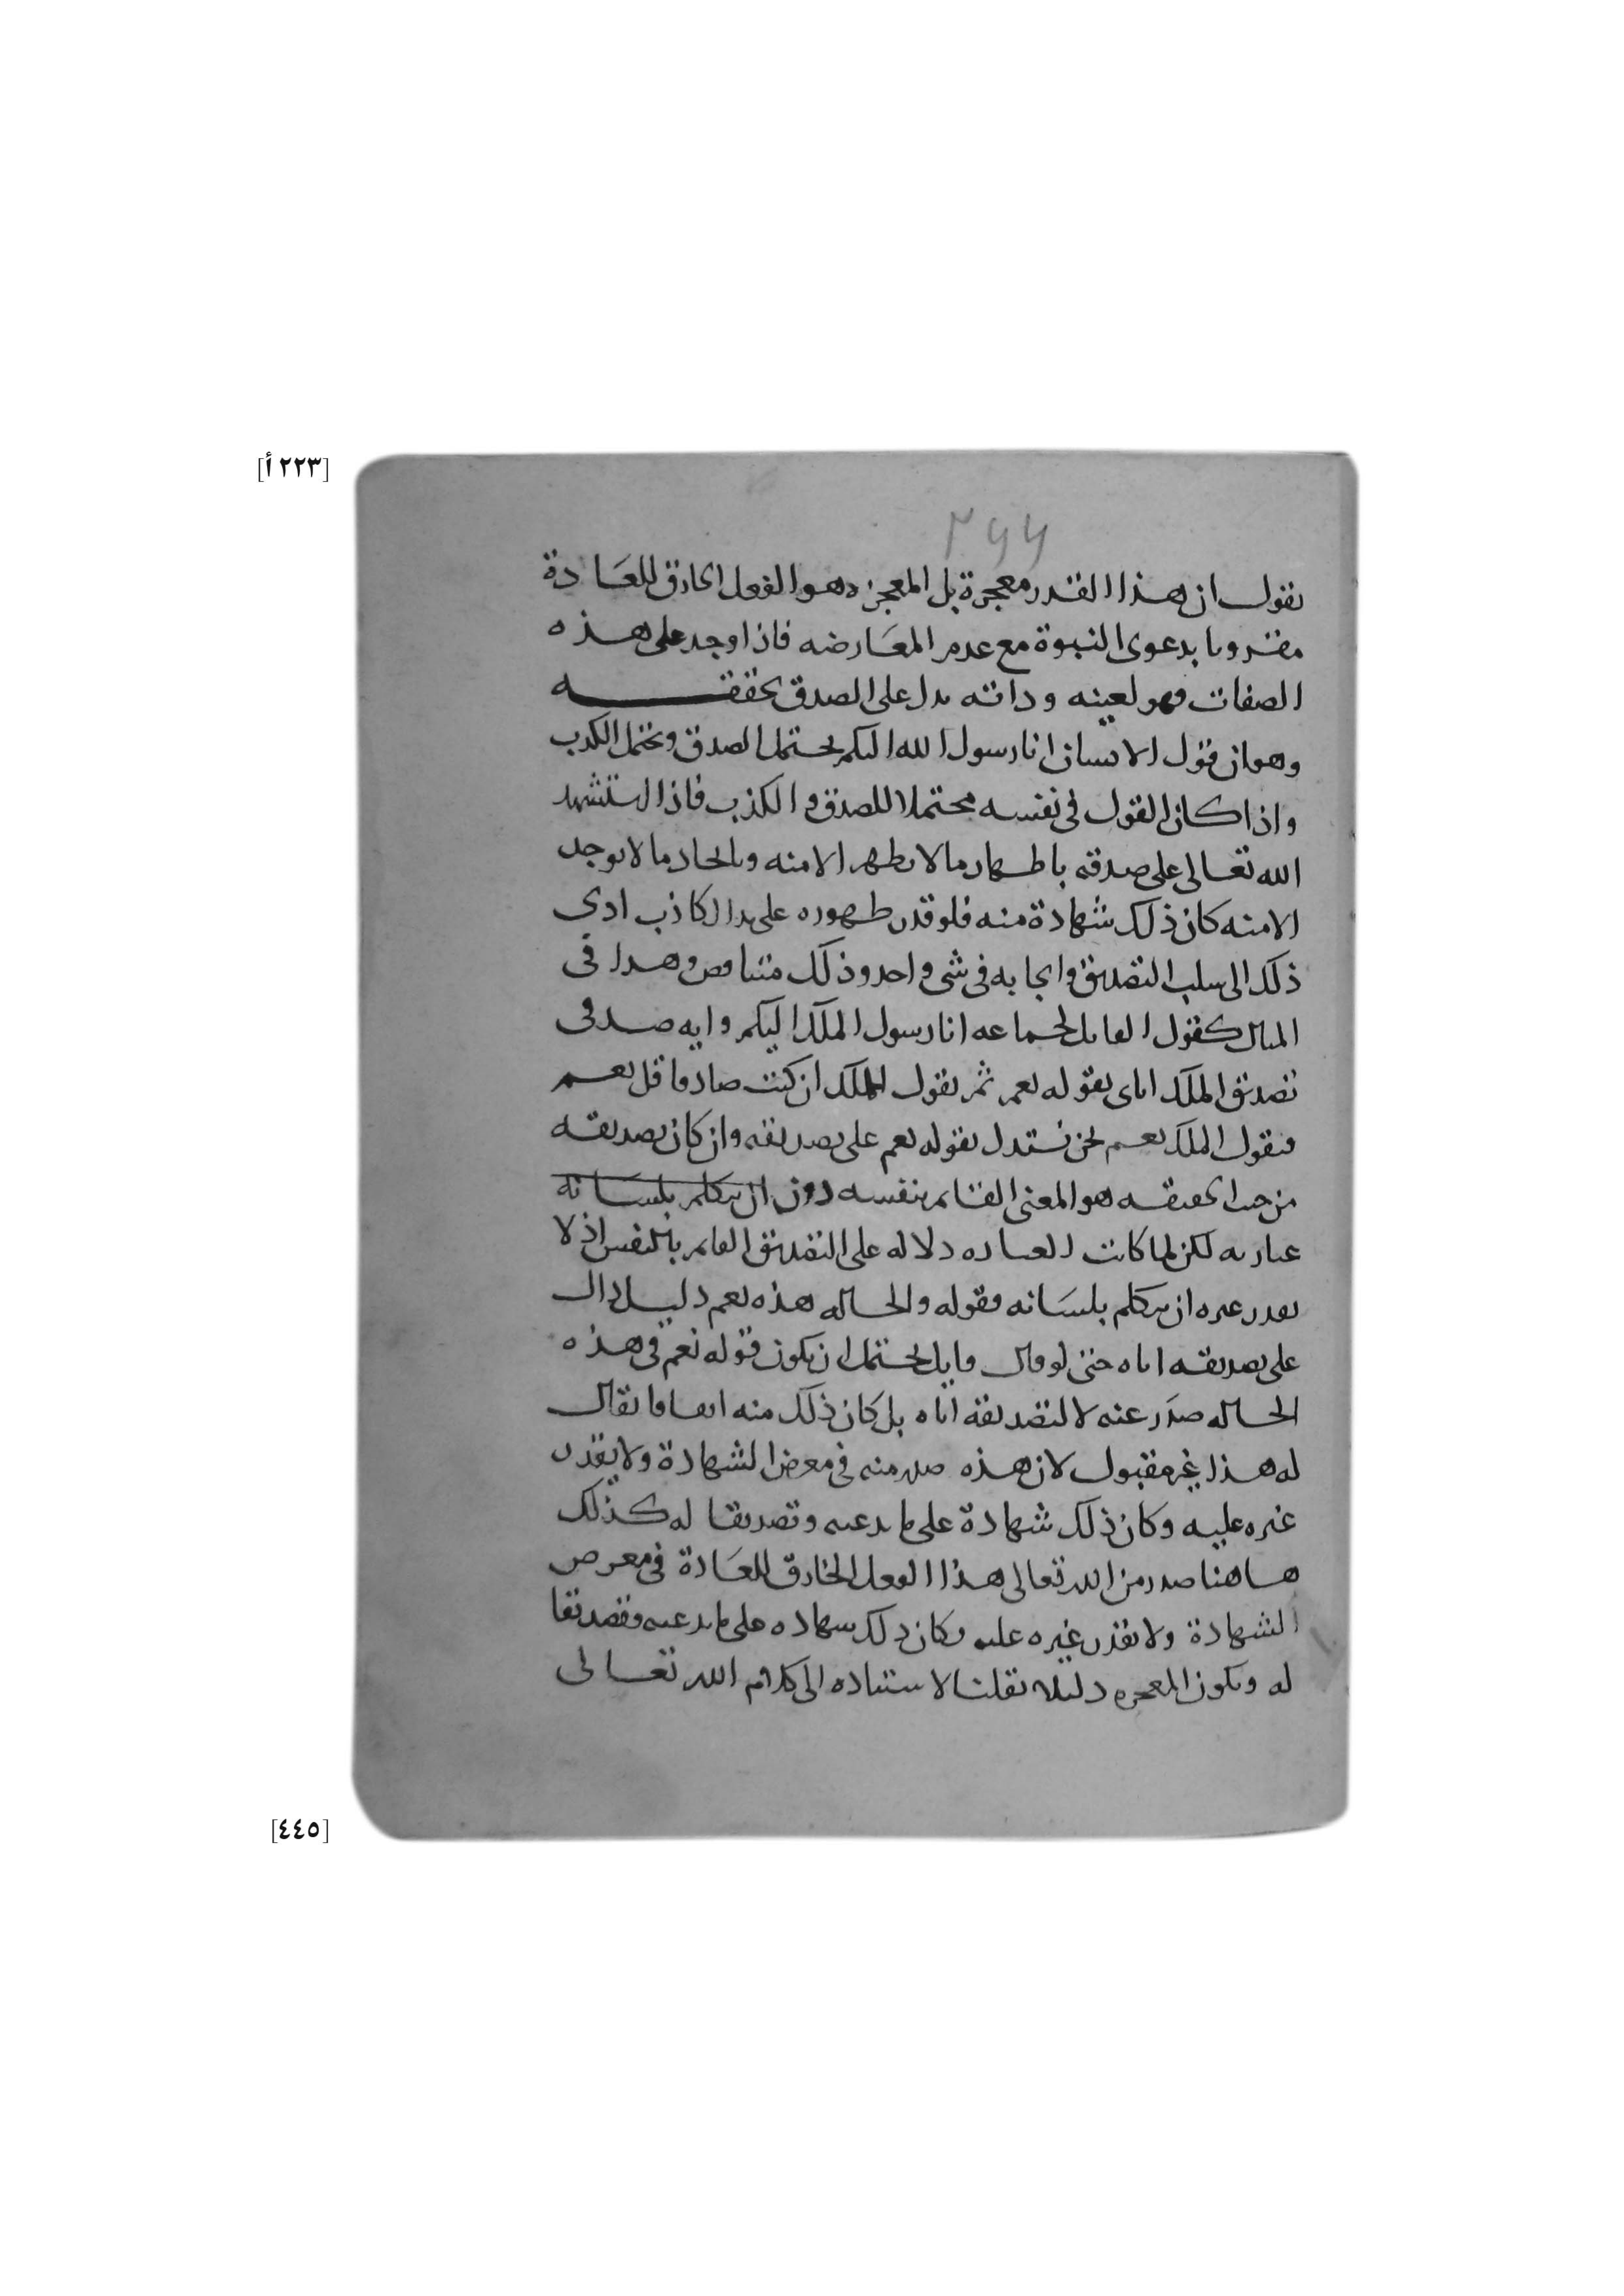 [٢٢٣ أ]
٢٦٦
نقول ان هذا القدر معجزة بل المعجزه هو الفعل الخارق للعادة
مقرونا بدعوى النبوة مع عدم المعارضه فاذا وجد على هذه
الصفات فهو لعينه وذاته يدل على الصدق تحققه
وهو ان قول الانسان انا رسول الله اليكم يحتمل الصدق ويحتمل الكذب
واذا كان القول في نفسه محتملا للصدق والكذب فاذا استشهد
الله تعالى على صدقه باظهار ما لا يظهر الا منه وبايجاد ما لا يوجد
الا منه كان ذلك شهادة منه فلو قدر ظهوره على يد الكاذب ادى
ذلك الى سلب التصديق وايجابه في شي واحد وذلك متناقض وهذا في
المثال كقول القايل لجماعه انا رسول الملك اليكم وايه صدقى
تصديق الملك اياى بقوله نعم ثم يقول للملك ان كنت صادقا قل نعم
فيقول الملك نعم نحن نستدل بقوله نعم على تصديقه وان كان تصديقه
من حيث الحقيقه هو المعنى القائم بنفسه دون ان يتكلم بلسانه
عبارته لكن لما كانت العباره دلاله على التصديق القائم بالنفس اذ لا
يقدر غيره ان يتكلم بلسانه فقوله والحاله هذه نعم دليل دال
على تصديقه اياه حتى لو قال قايل يحتمل ان يكون قوله نعم في هذه
الحاله صدر عنه لا لتصديقه اياه بل كان ذلك منه اتفاقا يقال
له هذا غير مقبول لان هذه صدر منه في معرض الشهادة ولا يقدر
غيره عليه وكان ذلك شهادة على ما يدعيه وتصديقا له كذلك
هاهنا صدر من الله تعالى هذا الفعل الخارق للعادة في معرض
الشهادة ولا يقدر غيره عليه وكان ذلك شهاده على ما يدعيه وتصديقا
له ويكون المعجزه دليلا نقلنا لاستناده الى كلام الله تعالى
[٤٤٥]